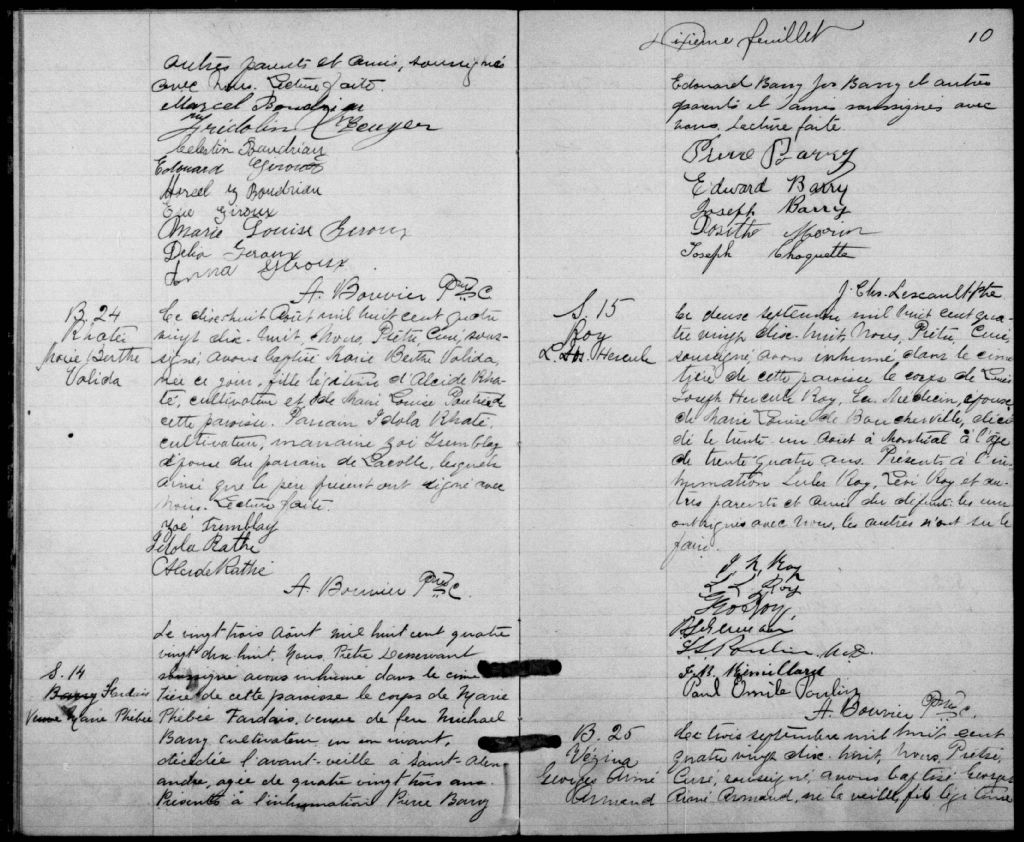 autres parents et amis, soussignés
avec Nous. Lecture faite.
Marcel Boudriau
Fridolin
Celestin Boudriau
Edouard Giroux
Marcel Boudriau
Eve Giroux
Marie Louise Geroux
Delia Geroux
Anna Giroux
A. Bouvier Ptre C.
B. 24
Rhaté
Marie Berthe
Valida
Le dix-huit Août mil huit cent quatre
vingt dix-huit, Nous, Prêtre, Curé, sous-
signé avons baptisé Marie Berthe Valida,
née ce jour, fille légitime d'Alcide Rha-
té, cultivateur et de Marie Louise de
cette paroisse. Parrain Idola Rhaté,
cultivateur, marraine Zoé Tremblay
épouse du parrain de Lacolle, lesquels
ainsi que le père ont signé avec
Nous. Lecture faite.
Zoé Tremblay
Idola Rathé
Alcide Rathé
A. Bouvier Ptre C.
S. 14
Barry Fardais
Veuve Marie Phébée
Le vingt trois Août mil huit cent quatre
vingt dix huit, Nous, Prêtre Desservant
soussigné avons inhumé dans le cime
tière de cette paroisse le corps de Marie
Phébée Fardais, veuve de feu Michael
Barry cultivateur en son vivant,
décédée l'avant-veille à Saint-Alex-
andre, agée de quatre vingt trois ans.
Présents à l'inhumation Pierre Barry
Dixieme feuillet
10
Edouard Barry Jos Barry et autres
parents et amis soussignés avec
nous. Lecture faite.
Pierre Barry
Edward Barry
Joseph Barry
Dosithé Morin
Joseph Choquette
J. Chs. Lescault ptre
S. 15
Roy
L. Jos Hercule
Le deuse septembre mil huit cent qua-
tre vingt dix-huit, Nous, Prêtre, Curé,
soussigné avons inhumé dans le cime
tière de cette paroisse le corps de Louis
Joseph Hercule Roy, Médecin, époux
de Marie Louise de Boucherville, décé
dé le trente un Août à Montréal à l'âge
de trente quatre ans. Présents à l'in-
humation Roy, Levi Roy et au-
tres parents et amis du défunt: les uns
ont signés avec Nous, les autres n'ont su le
faire.
J. N. Roy
L. L. Roy
Geo Roy
M.D.
J. B. Rémillard
Paul Omile Poulin
A. Bouvier Ptre C.
B. 25
Vézina
Georges Aimé
Armand
Le trois septembre mil huit cent
quatre vingt dix-huit, Nous, Prêtre,
Curé, soussigné, avons baptisé Georges
Aimé Armand, né la veille, fils légitime